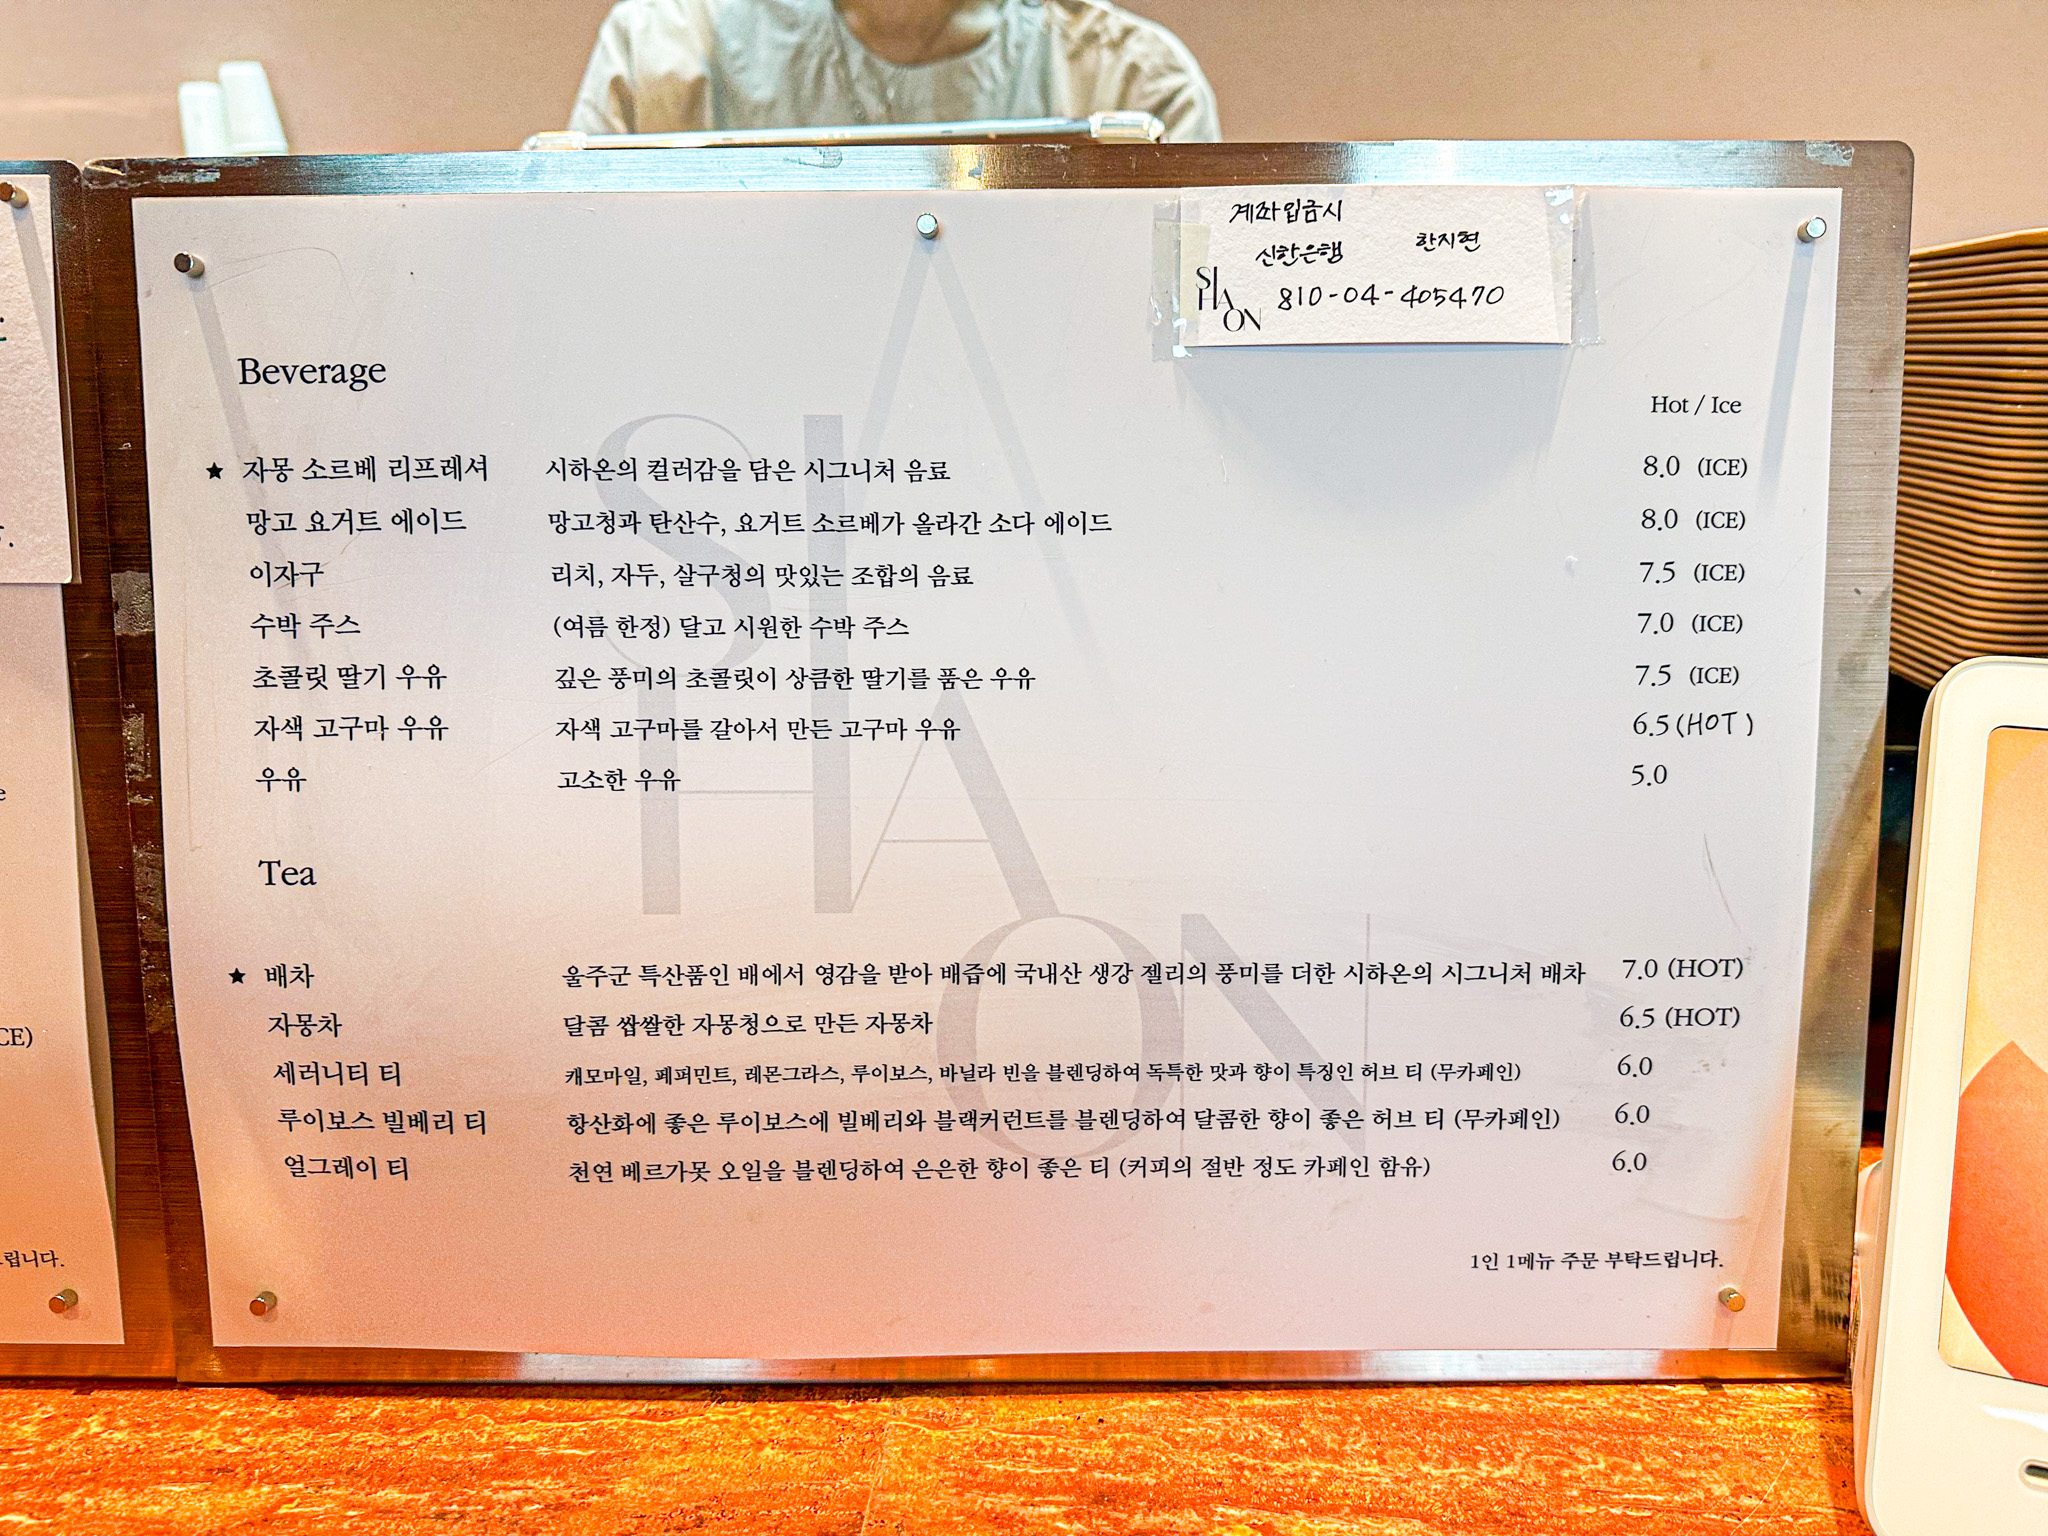 계좌입금시
신한은행 한지현
SI
HA
ON
810-04-405470
Beverage
Hot / Ice
★ 자몽 소르베 리프레셔 시하온의 컬러감을 담은 시그니처 음료 8.0 (ICE)
망고 요거트 에이드 망고청과 탄산수, 요거트 소르베가 올라간 소다 에이드 8.0 (ICE)
이자구 리치, 자두, 살구청의 맛있는 조합의 음료 7.5 (ICE)
수박 주스 (여름 한정) 달고 시원한 수박 주스 7.0 (ICE)
초콜릿 딸기 우유 깊은 풍미의 초콜릿이 상큼한 딸기를 품은 우유 7.5 (ICE)
자색 고구마 우유 자색 고구마를 갈아서 만든 고구마 우유 6.5 (HOT)
우유 고소한 우유 5.0
SI
HA
ON
Tea
★ 배차 울주군 특산품인 배에서 영감을 받아 배즙에 국내산 생강 젤리의 풍미를 더한 시하온의 시그니처 배차 7.0 (HOT)
자몽차 달콤 쌉쌀한 자몽청으로 만든 자몽차 6.5 (HOT)
세러니티 티 캐모마일, 페퍼민트, 레몬그라스, 루이보스, 바닐라 빈을 블렌딩하여 독특한 맛과 향이 특징인 허브 티 (무카페인) 6.0
루이보스 빌베리 티 항산화에 좋은 루이보스에 빌베리와 블랙커런트를 블렌딩하여 달콤한 향이 좋은 허브 티 (무카페인) 6.0
얼그레이 티 천연 베르가못 오일을 블렌딩하여 은은한 향이 좋은 티 (커피의 절반 정도 카페인 함유) 6.0
1인 1메뉴 주문 부탁드립니다.
CE)
립니다.